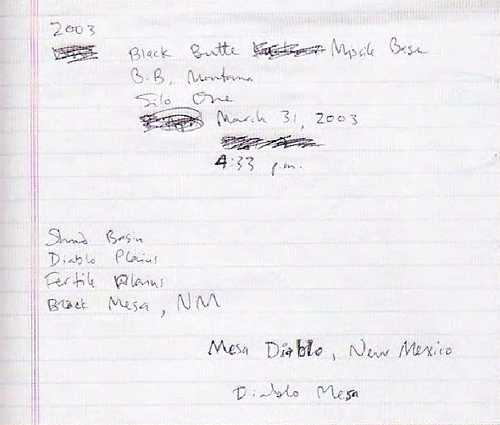 2003
Black Butte Missile Base
B.B. Montana
Silo One
March 31, 2003
4:33 p.m.
Basin
Diablo Plains
Fertile Plains
Black Mesa, NM
Mesa Diablo, New Mexico
Diablo Mesa